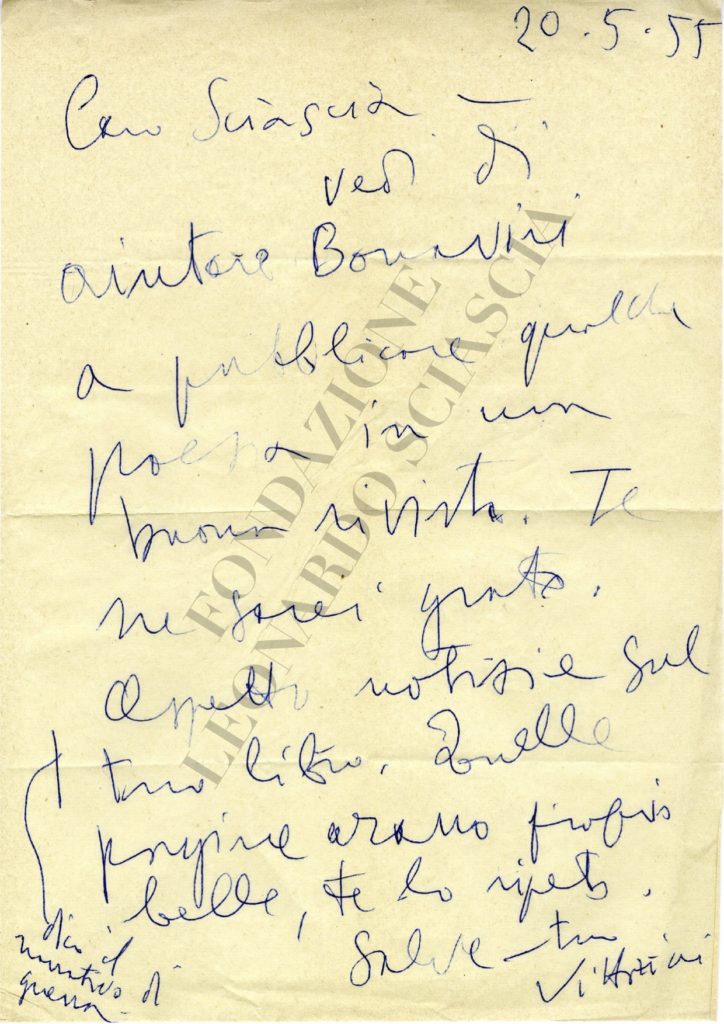 20.5.55
Caro Sciascia —
vedi di
aiutare Bonaviri
a pubblicare qualche
poesia in una
buona rivista. Te
ne sarei grato.
Aspetto notizie sul
tuo libro. Quelle
pagine erano proprio
belle, te lo ripeto.
Salve — tuo
Vittorini
dico il
narrativo di
guerra
FONDAZIONE
LEONARDO SCIASCIA